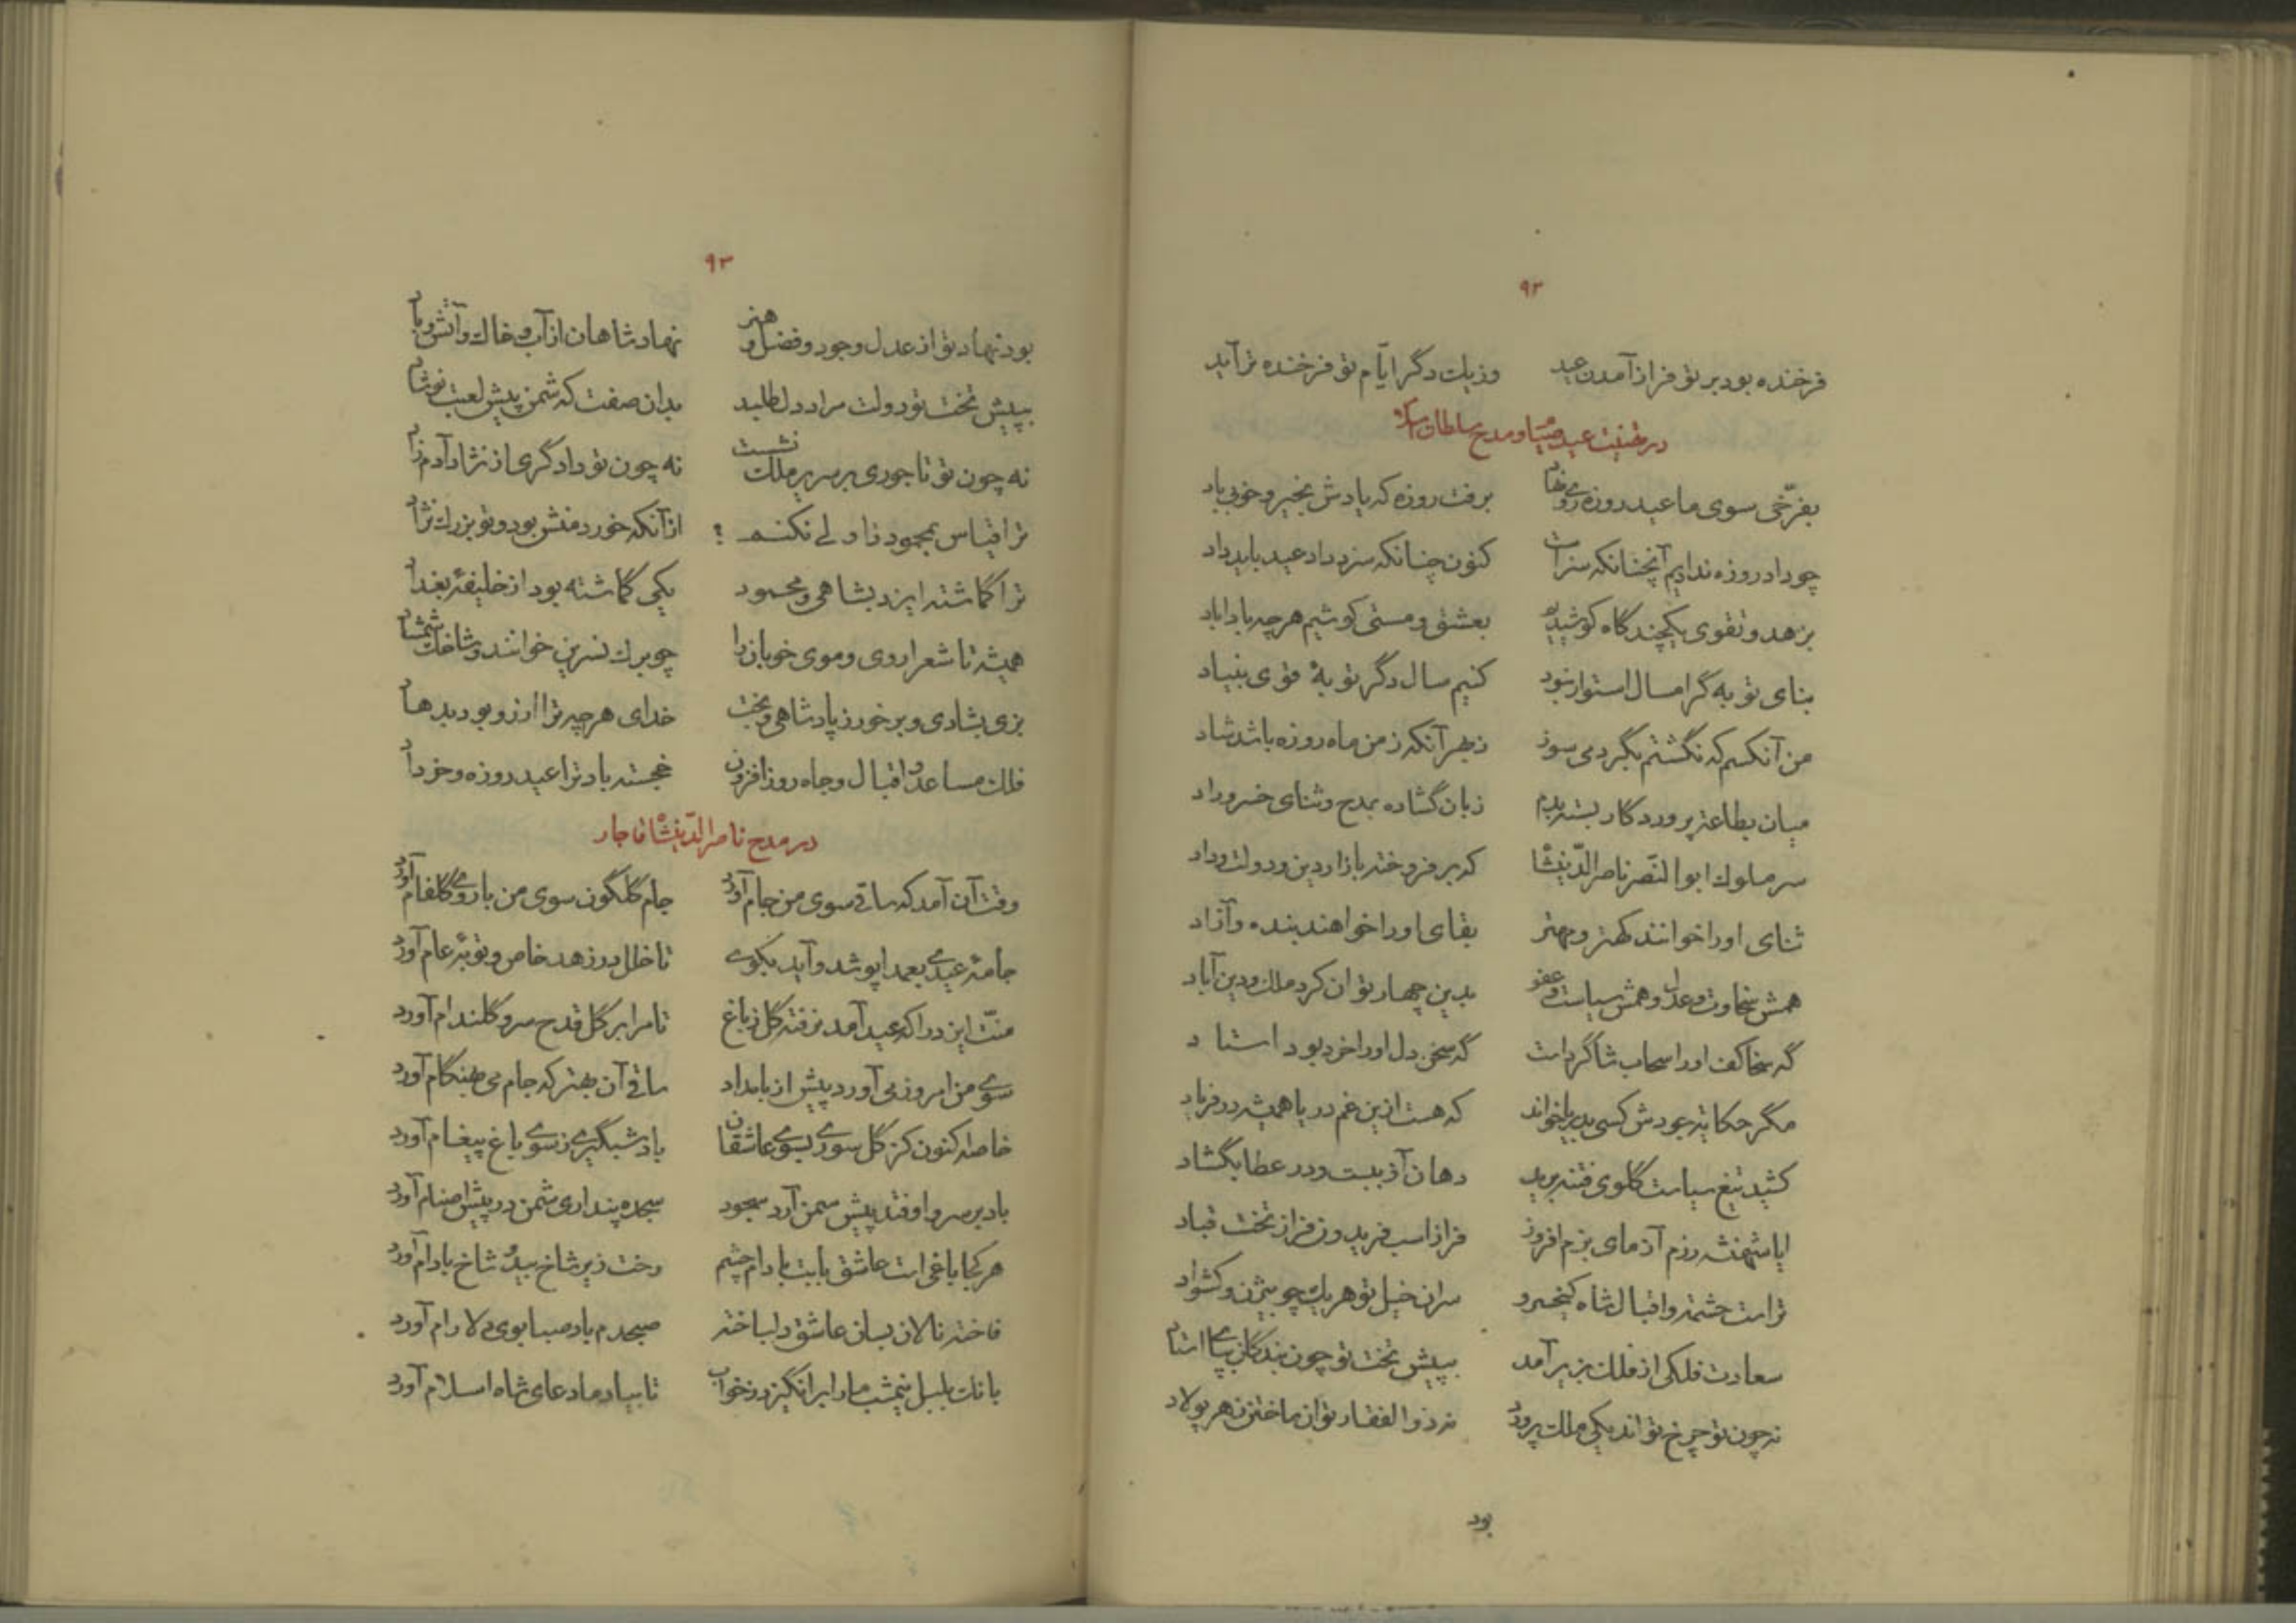 ۹۲
فرخنده بود بر تو فراز آمدن عید وز یک دگر ایّام تو فرخنده تر آید
در تهنیت عید صیام و مدح سلطان
بفرّخی سوی ما عید روزه روی نهاد برفت روزه که یادش بخیر و خوبی باد
چو داد روزه ندادیم آنچنانکه سزاست کنون چنانکه سزد داد عید باید داد
بزهد و تقوی یکچند گاه کوشیدیم بعشق و مستی کوشیم هر چه بادا باد
بنای توبه گر امسال استوار نبود کنیم سال دگر توبهٔ قوی بنیاد
من آنکسم که نگشتم بگرد می سوز ز بهر آنکه ز من ماه روزه باشد شاد
میان بطاعت پروردگار بسته بدم زبان گشاده بمدح و ثنای خسرو راد
سر ملوک ابوالنّصر ناصر الدّینشاه که بر فروخته بازار دین و دولت و داد
ثنای او را خوانند کهتر و مهتر بقای او را خواهند بنده و آزاد
همش سخاوت و عدل و همش سیاست و عفو بدین چهار توان کرد ملک و دین آباد
گه سخا کف او را سحاب شاگرد است گه سخن دل او را خرد بود استاد
مگر حکایت جودش کسی بدریا خواند که هست ازین غم دریا همیشه در فریاد
کشید تیغ سیاست گلوی فتنه برید دهان آز ببست و در عطا بگشاد
ایا شهنشه رزم آزمای بزم افروز فراز اسب فریدون فراز تخت قباد
تراست حشمت و اقبال شاه کیخسرو سران خیل تو هر یک چو بیژن و کشواد
سعادت فلکی از فلک بزیر آمد بپیش تخت تو چون بندگان بپای استاد
نه چون تو چرخ تواند یکی ملک پرورد نه ذوالفقار توان ساختن ز هر پولاد
بود
۹۳
بود نهاد تو از عدل و جود و فضل و هنر نهاد شاهان از آب و خاک و آتش و باد
بپیش تخت تو دولت مراد دل طلبد بدان صفت که شمن پیش لعبت نوشاد
نه چون تو تاجوری بر سریر ملک نشست نه چون تو دادگری از نژاد آدم زاد
ترا قیاس بمحمود زاولی نکنم ؟ از آنکه خورد منش بود و تو بزرگ نژاد
ترا گماشته ایزد بشاهی و محمود یکی گماشته بود از خلیفهٔ بغداد
همیشه تا شعرا روی و موی خوبان را چو برگ نسرین خوانند و شاخک شمشاد
بزی بشادی و برخور ز پادشاهی و بخت خدای هر چه ترا ارزو بود بدهاد
فلک مساعد و اقبال و جاه روز افزون خجسته باد ترا عید روزه و خرداد
در مدح ناصر الدّینشاه قاجار
وقت آن آمد که ساقی سوی من جام آورد جام گلگون سوی من با روی گلفام آورد
جامهٔ عیدی بعمدا پوشد و آید بکوی تا خلل در زهد خاص و توبهٔ عام آورد
منّت ایزد را که عید آمد نرفته گل ز باغ تا مرا بر گل قدح سرو گلندام آورد
سوی من امروز می آورد پیش از بامداد ساقی آن بهتر که جام می بهنگام آورد
خاصه کنون کز گل سوری بسوی عاشقان باد شبگیری ز سوی باغ پیغام آورد
باد بر سرو اوفتد پیش سمن آرد سجود سجده پنداری شمن در پیش اصنام آورد
هر کجا باغی است عاشق با بت بادام چشم رخت زیر شاخ بید و شاخ بادام آورد
فاخته نالان بسان عاشق دلباخته صبحدم باد صبا بوی دلارام آورد
بانگ بلبل نیمشب ما را برانگیزد ز خواب تا بیاد ما دعای شاه اسلام آورد